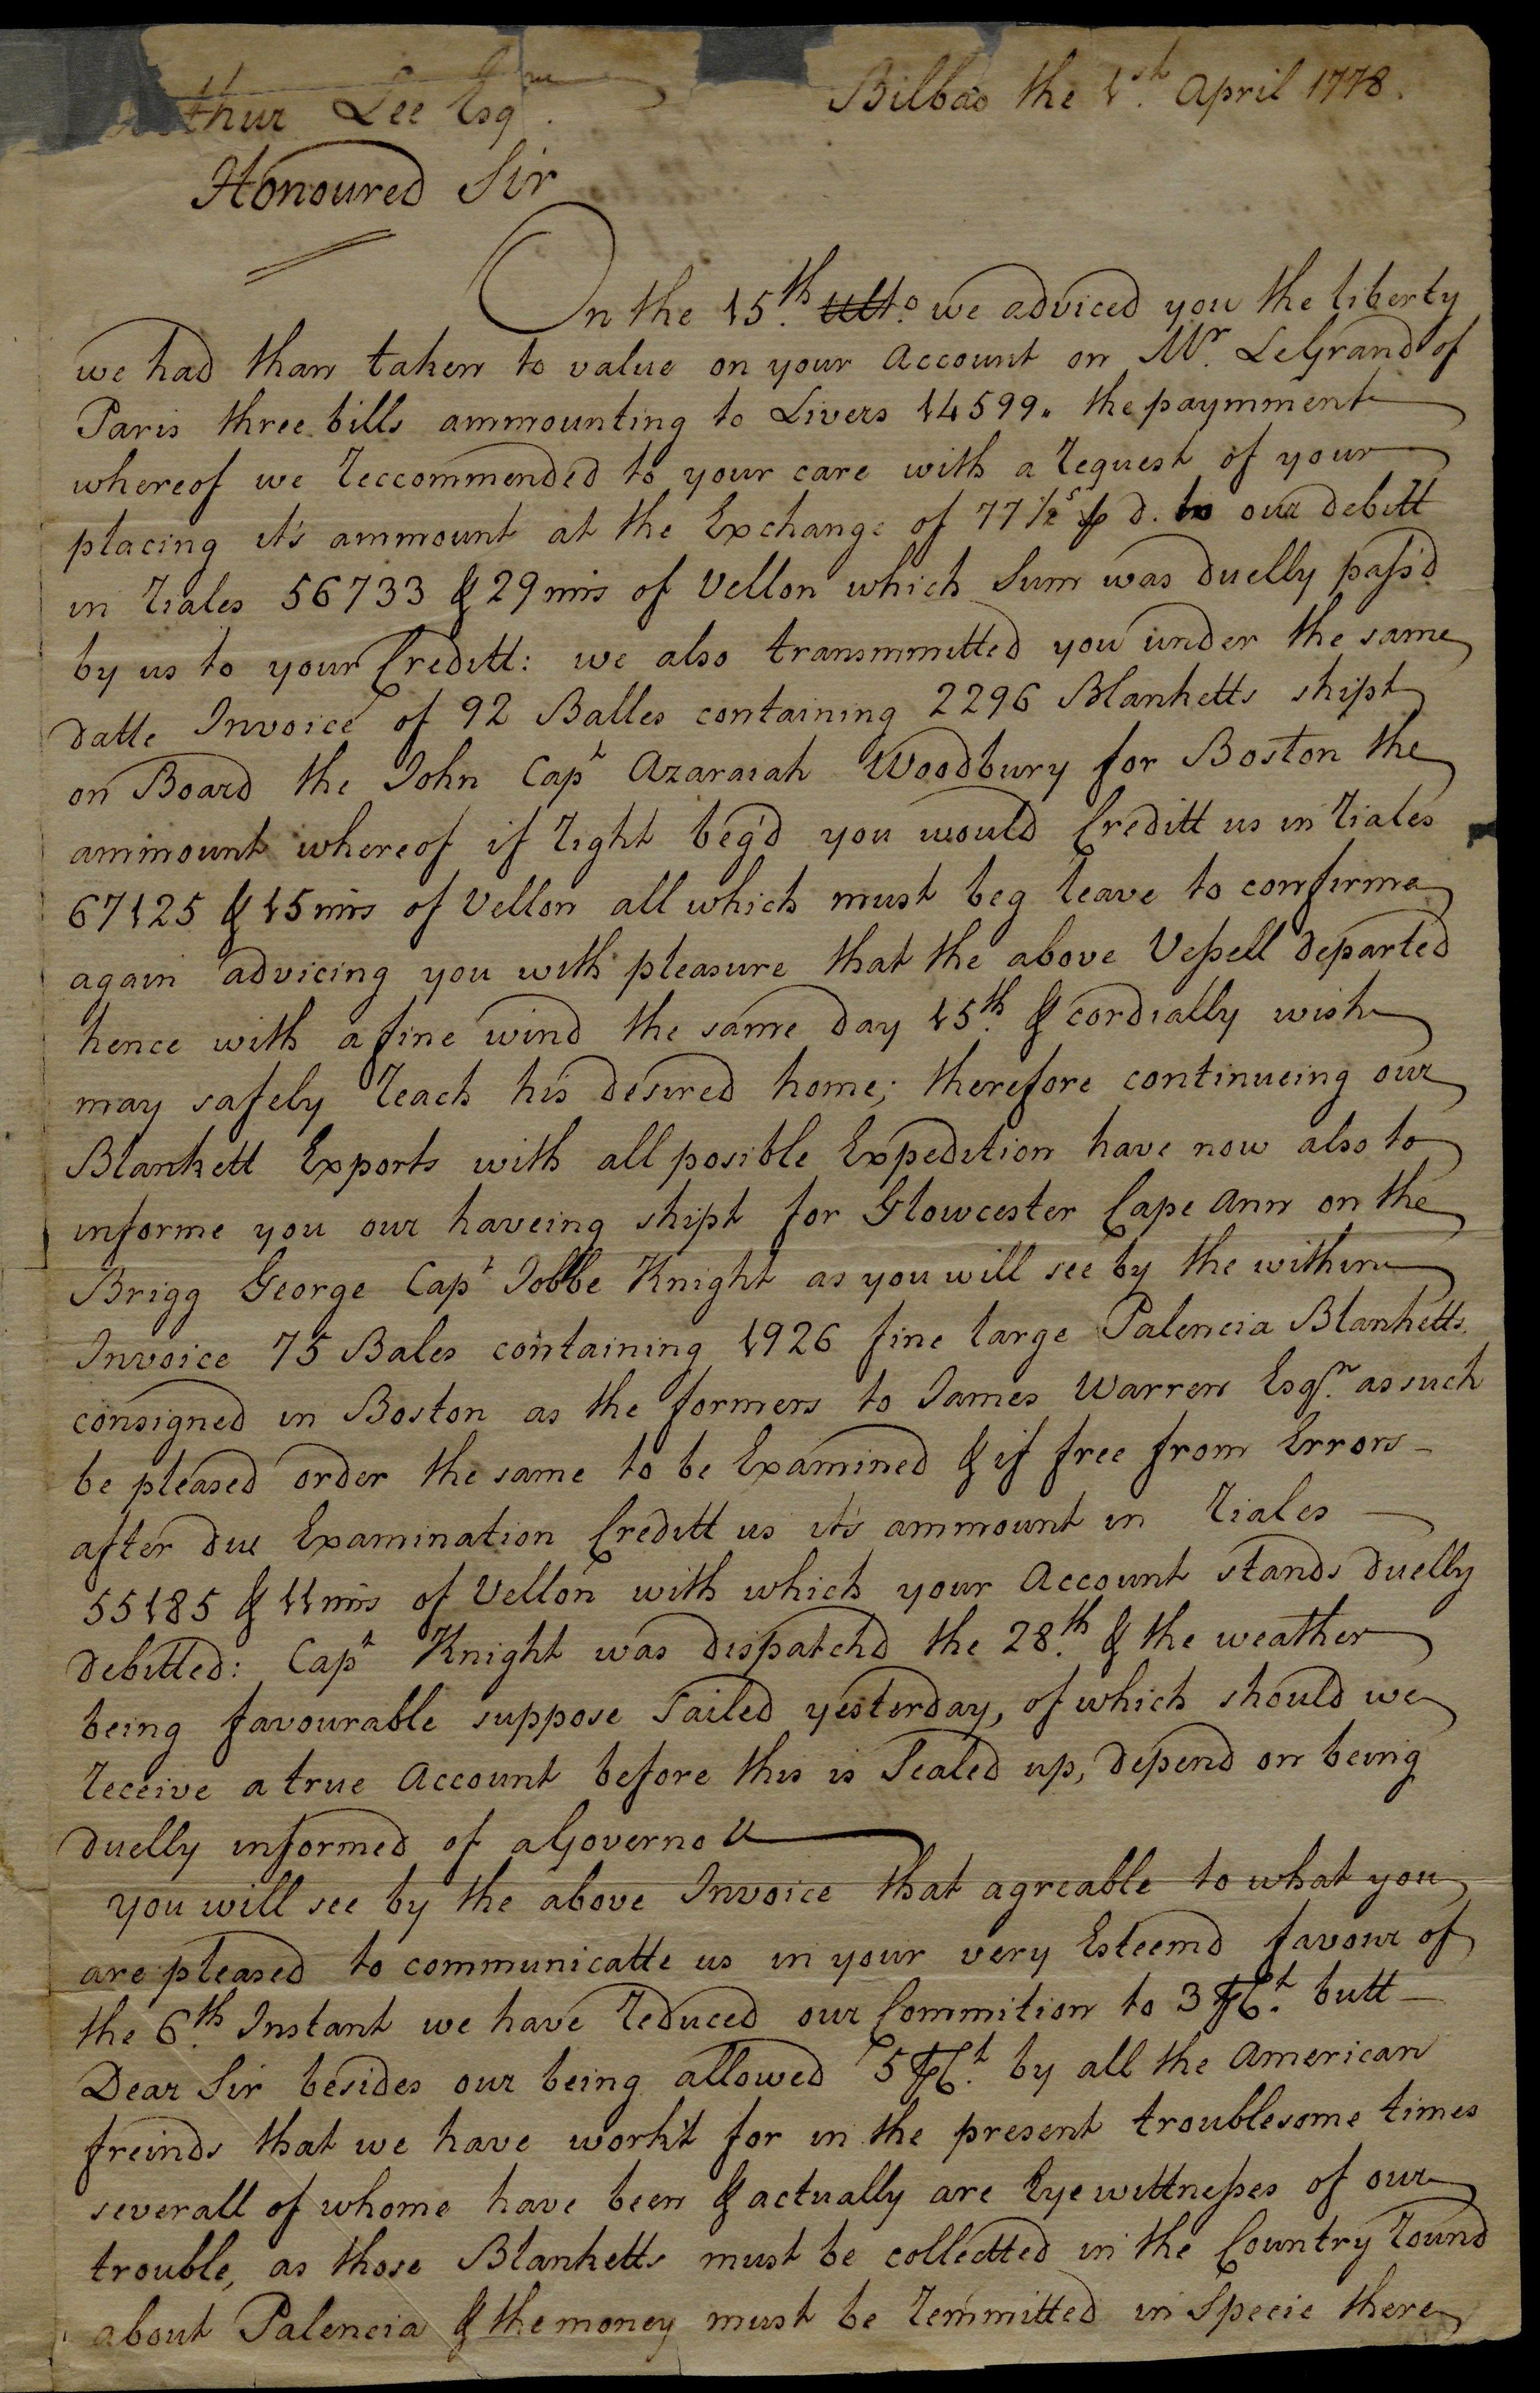 thur Lee Esqr.
Bilbao the 1st. April 1778.
Honoured Sir
On the 15th. Ulto. we adviced you the liberty
we had than taken to value on your Account on Mr. LeGrand of
Paris three bills ammounting to Livers 14599. the paymment
whereof we reccommended to your care with a request of your
placing it's ammount at the Exchange of 77½s p d. to our debitt
in riales 56733 & 29 mrs of Vellon which Sum was duelly pass'd
by us to your Creditt: we also transmmitted you under the same
datte Invoice of 92 Balles containing 2296 Blanketts shipt
on Board the John Capt Azaraiah Woodbury for Boston the
ammount whereof if right beg'd you would Creditt us in riales
67125 & 15 mrs of Vellon all which must beg leave to confirme
again advicing you with pleasure that the above Vessell departed
hence with a fine wind the same day 15th. & cordially wish
may safely reach his desired home; therefore continueing our
Blankett Exports with all posible Expedition have now also to
informe you our haveing shipt for Glowcester Cape Ann on the
Brigg George Capt Jobbe Knight as you will see by the within
Invoice 75 Bales containing 1926 fine large Palencia Blanketts
consigned in Boston as the formers to James Warren Esqr. as such
be pleased order the same to be Examined & if free from Errors
after due Examination Creditt us it's ammount in riales
55185 & 11 mrs of Vellon with which your Account stands duelly
debitted: Capt Knight was dispatchd the 28th. & the weather
being favourable suppose Sailed yesterday, of which should we
receive a true Account before this is Sealed up, depend on being
duelly informed of a Governo
you will see by the above Invoice that agreable to what you
are pleased to communicatte us in your very Esteemd favour of
the 6th. Instant we have reduced our Commition to 3 p Ct. butt
Dear Sir besides our being allowed 5 p Ct. by all the American
freinds that we have work't for in the present troublesome times
severall of whome have been & actually are Eye wittnesses of our
trouble, as those Blanketts must be collectted in the Country round
about Palencia & the money must be remmitted in Specie there